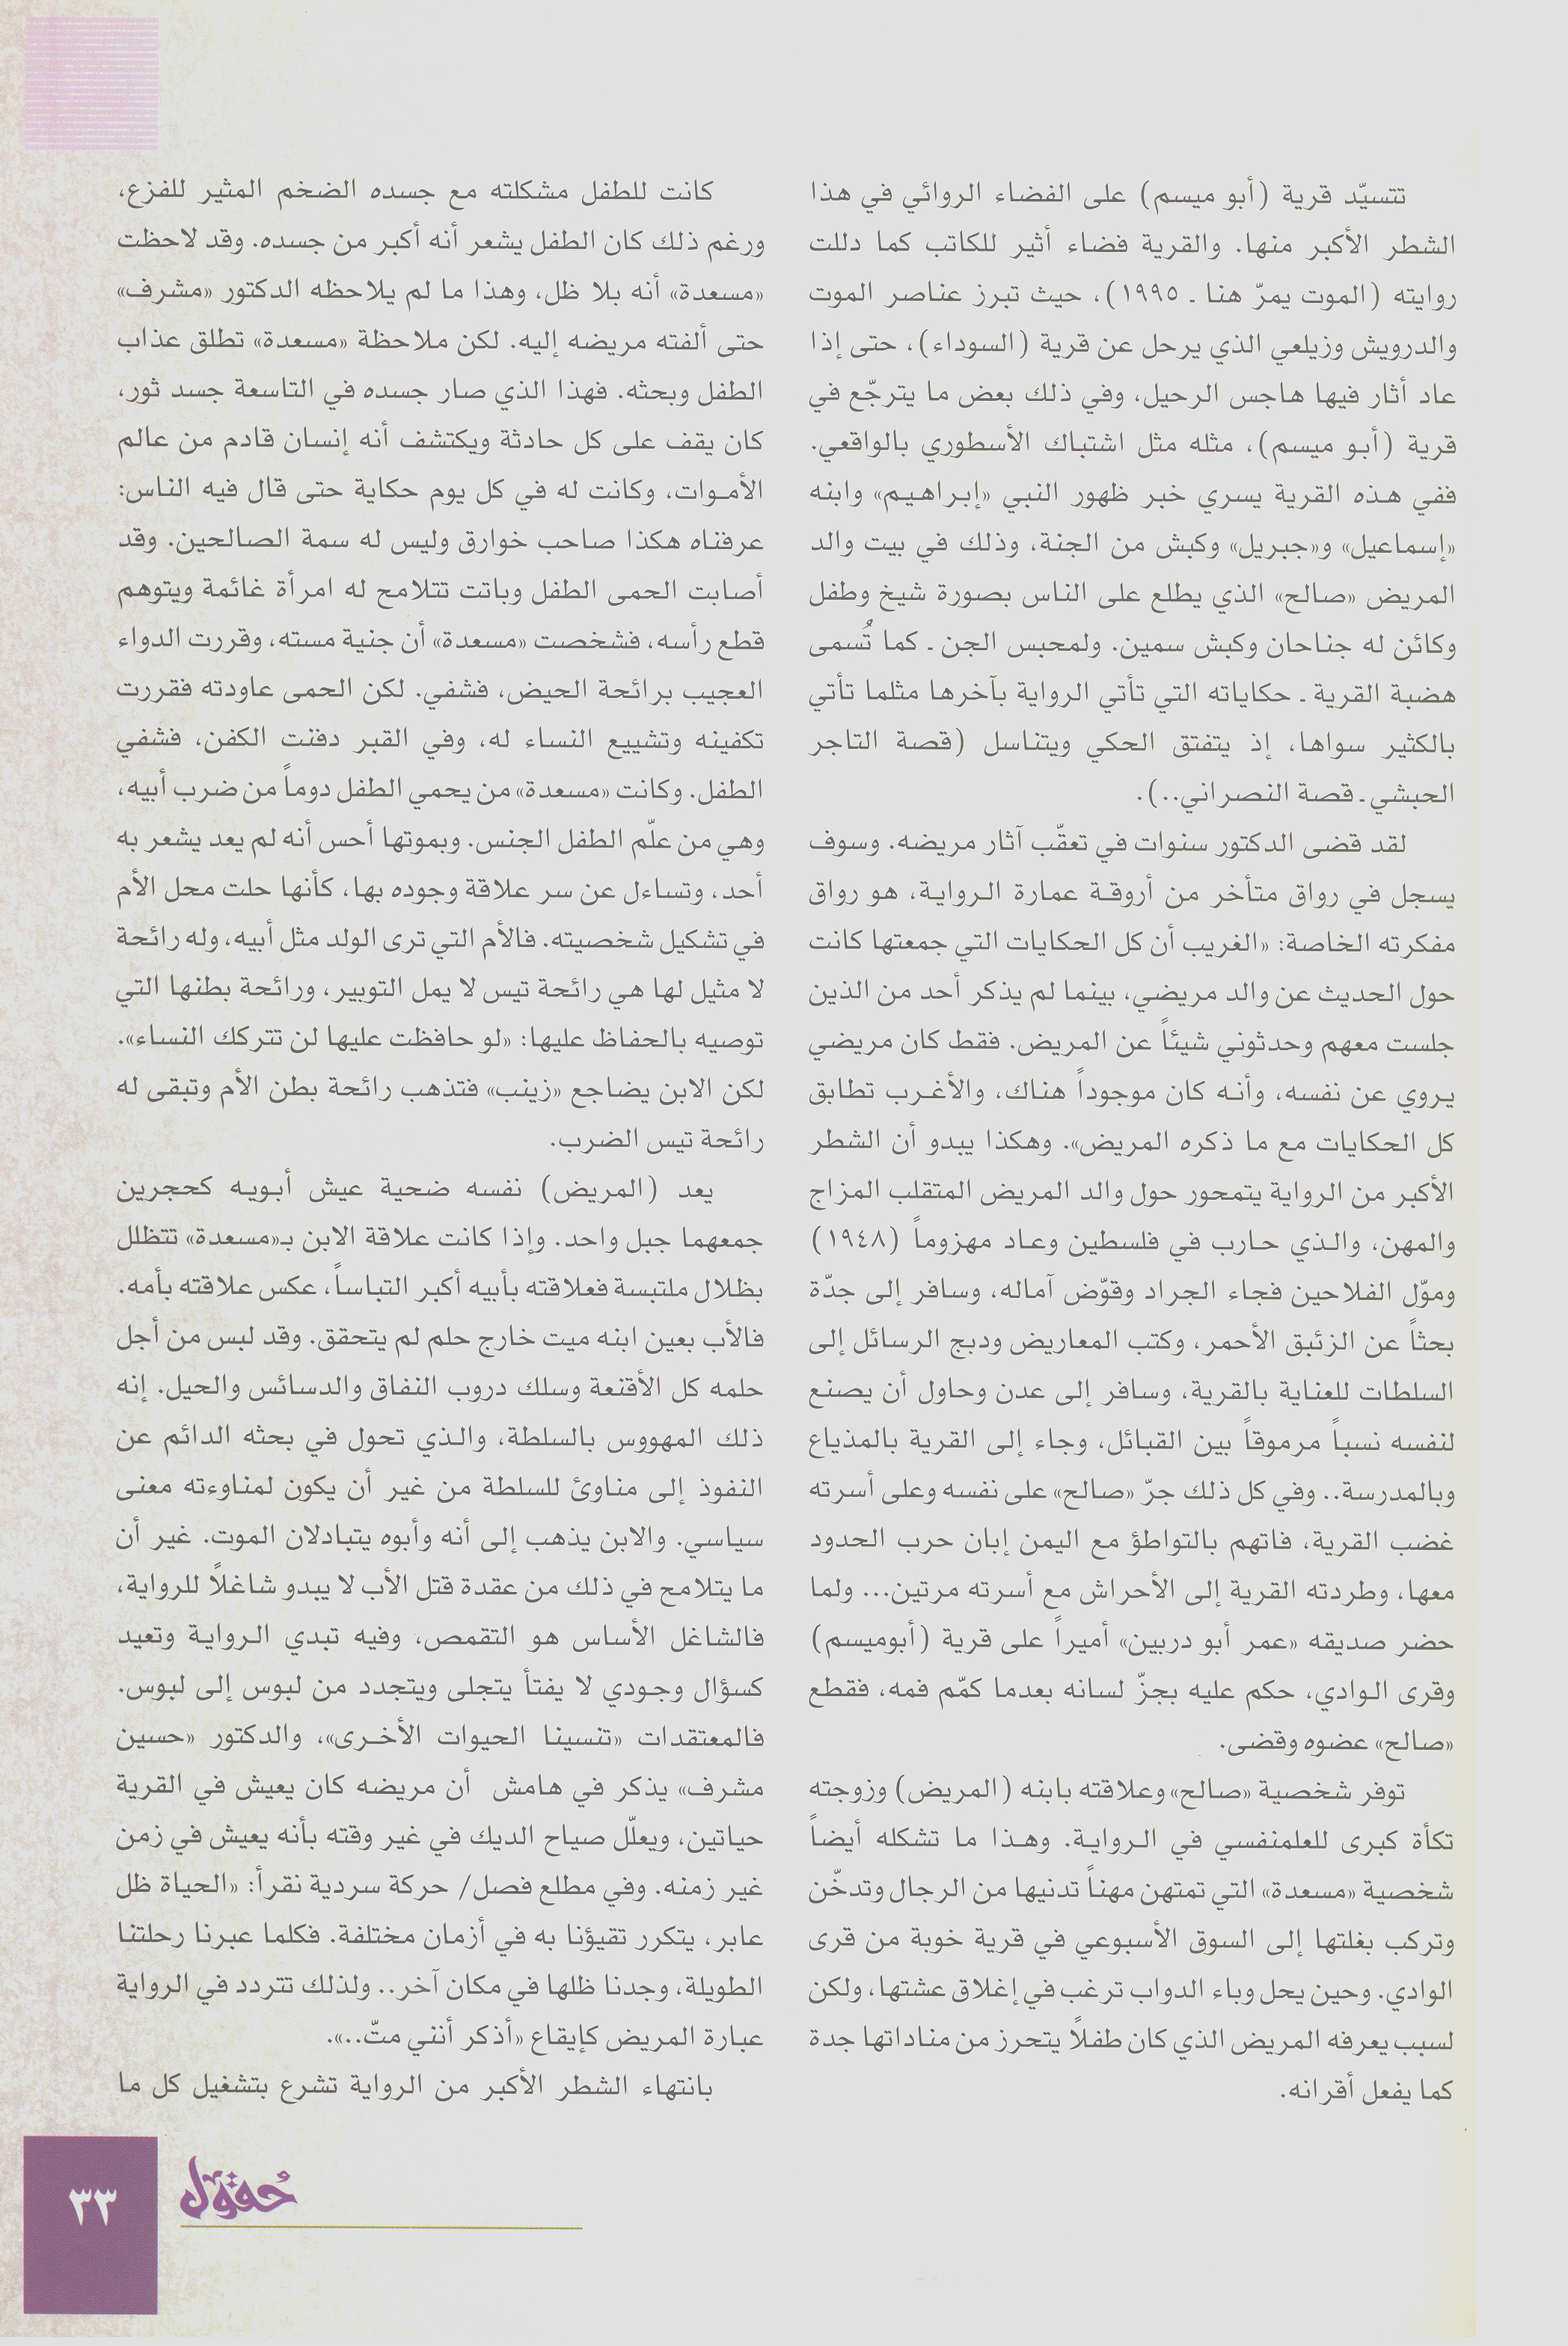 تتسيّد قرية (أبو ميسم) على الفضاء الروائي في هذا
الشطر الأكبر منها. والقرية فضاء أثير للكاتب كما دللت
روايته (الموت يمرّ هنا ـ ١٩٩٥)، حيث تبرز عناصر الموت
والدرويش وزيلعي الذي يرحل عن قرية (السوداء)، حتى إذا
عاد أثار فيها هاجس الرحيل، وفي ذلك بعض ما يترجّع في
قرية (أبو ميسم)، مثله مثل اشتباك الأسطوري بالواقعي.
ففي هذه القرية يسري خبر ظهور النبي «إبراهيم» وابنه
«إسماعيل» و«جبريل» وكبش من الجنة، وذلك في بيت والد
المريض «صالح» الذي يطلع على الناس بصورة شيخ وطفل
وكائن له جناحان وكبش سمين. ولمحبس الجن ـ كما تُسمى
هضبة القرية ـ حكاياته التي تأتي الرواية بآخرها مثلما تأتي
بالكثير سواها، إذ يتفتق الحكي ويتناسل (قصة التاجر
الحبشي ـ قصة النصراني..).
لقد قضى الدكتور سنوات في تعقّب آثار مريضه. وسوف
يسجل في رواق متأخر من أروقة عمارة الرواية، هو رواق
مفكرته الخاصة: «الغريب أن كل الحكايات التي جمعتها كانت
حول الحديث عن والد مريضي، بينما لم يذكر أحد من الذين
جلست معهم وحدثوني شيئاً عن المريض. فقط كان مريضي
يروي عن نفسه، وأنه كان موجوداً هناك، والأغرب تطابق
كل الحكايات مع ما ذكره المريض». وهكذا يبدو أن الشطر
الأكبر من الرواية يتمحور حول والد المريض المتقلب المزاج
والمهن، والذي حارب في فلسطين وعاد مهزوماً (١٩٤٨)
وموّل الفلاحين فجاء الجراد وقوّض آماله، وسافر إلى جدّة
بحثاً عن الزئبق الأحمر، وكتب المعاريض ودبج الرسائل إلى
السلطات للعناية بالقرية، وسافر إلى عدن وحاول أن يصنع
لنفسه نسباً مرموقاً بين القبائل، وجاء إلى القرية بالمذياع
وبالمدرسة.. وفي كل ذلك جرّ «صالح» على نفسه وعلى أسرته
غضب القرية، فاتهم بالتواطؤ مع اليمن إبان حرب الحدود
معها، وطردته القرية إلى الأحراش مع أسرته مرتين... ولما
حضر صديقه «عمر أبو دربين» أميراً على قرية (أبوميسم)
وقرى الوادي، حكم عليه بجزّ لسانه بعدما كمّم فمه، فقطع
«صالح» عضوه وقضى.
توفر شخصية «صالح» وعلاقته بابنه (المريض) وزوجته
تكأة كبرى للعلمنفسي في الرواية. وهذا ما تشكله أيضاً
شخصية «مسعدة» التي تمتهن مهناً تدنيها من الرجال وتدخّن
وتركب بغلتها إلى السوق الأسبوعي في قرية خوبة من قرى
الوادي. وحين يحل وباء الدواب ترغب في إغلاق عشتها، ولكن
لسبب يعرفه المريض الذي كان طفلاً يتحرز من مناداتها جدة
كما يفعل أقرانه.
كانت للطفل مشكلته مع جسده الضخم المثير للفزع،
ورغم ذلك كان الطفل يشعر أنه أكبر من جسده. وقد لاحظت
«مسعدة» أنه بلا ظل، وهذا ما لم يلاحظه الدكتور «مشرف»
حتى ألفته مريضه إليه. لكن ملاحظة «مسعدة» تطلق عذاب
الطفل وبحثه. فهذا الذي صار جسده في التاسعة جسد ثور،
كان يقف على كل حادثة ويكتشف أنه إنسان قادم من عالم
الأموات، وكانت له في كل يوم حكاية حتى قال فيه الناس:
عرفناه هكذا صاحب خوارق وليس له سمة الصالحين. وقد
أصابت الحمى الطفل وباتت تتلامح له امرأة غائمة ويتوهم
قطع رأسه، فشخصت «مسعدة» أن جنية مسته، وقررت الدواء
العجيب برائحة الحيض، فشفي. لكن الحمى عاودته فقررت
تكفينه وتشييع النساء له، وفي القبر دفنت الكفن، فشفي
الطفل. وكانت «مسعدة» من يحمي الطفل دوماً من ضرب أبيه،
وهي من علّم الطفل الجنس. وبموتها أحس أنه لم يعد يشعر به
أحد، وتساءل عن سر علاقة وجوده بها، كأنها حلت محل الأم
في تشكيل شخصيته. فالأم التي ترى الولد مثل أبيه، وله رائحة
لا مثيل لها هي رائحة تيس لا يمل التوبير، ورائحة بطنها التي
توصيه بالحفاظ عليها: «لو حافظت عليها لن تتركك النساء».
لكن الابن يضاجع «زينب» فتذهب رائحة بطن الأم وتبقى له
رائحة تيس الضرب.
يعد (المريض) نفسه ضحية عيش أبويه كحجرين
جمعهما جبل واحد. وإذا كانت علاقة الابن بـ«مسعدة» تتظلل
بظلال ملتبسة فعلاقته بأبيه أكبر التباساً، عكس علاقته بأمه.
فالأب بعين ابنه ميت خارج حلم لم يتحقق. وقد لبس من أجل
حلمه كل الأقنعة وسلك دروب النفاق والدسائس والحيل. إنه
ذلك المهووس بالسلطة، والذي تحول في بحثه الدائم عن
النفوذ إلى مناوئ للسلطة من غير أن يكون لمناوءته معنى
سياسي. والابن يذهب إلى أنه وأبوه يتبادلان الموت. غير أن
ما يتلامح في ذلك من عقدة قتل الأب لا يبدو شاغلاً للرواية،
فالشاغل الأساس هو التقمص، وفيه تبدي الرواية وتعيد
كسؤال وجودي لا يفتأ يتجلى ويتجدد من لبوس إلى لبوس.
فالمعتقدات «تنسينا الحيوات الأخرى»، والدكتور «حسين
مشرف» يذكر في هامش أن مريضه كان يعيش في القرية
حياتين، ويعلّل صياح الديك في غير وقته بأنه يعيش في زمن
غير زمنه. وفي مطلع فصل/ حركة سردية نقرأ: «الحياة ظل
عابر، يتكرر تقيؤنا به في أزمان مختلفة. فكلما عبرنا رحلتنا
الطويلة، وجدنا ظلها في مكان آخر.. ولذلك تتردد في الرواية
عبارة المريض كإيقاع «أذكر أنني متّ..».
بانتهاء الشطر الأكبر من الرواية تشرع بتشغيل كل ما
حُقول
٣٣